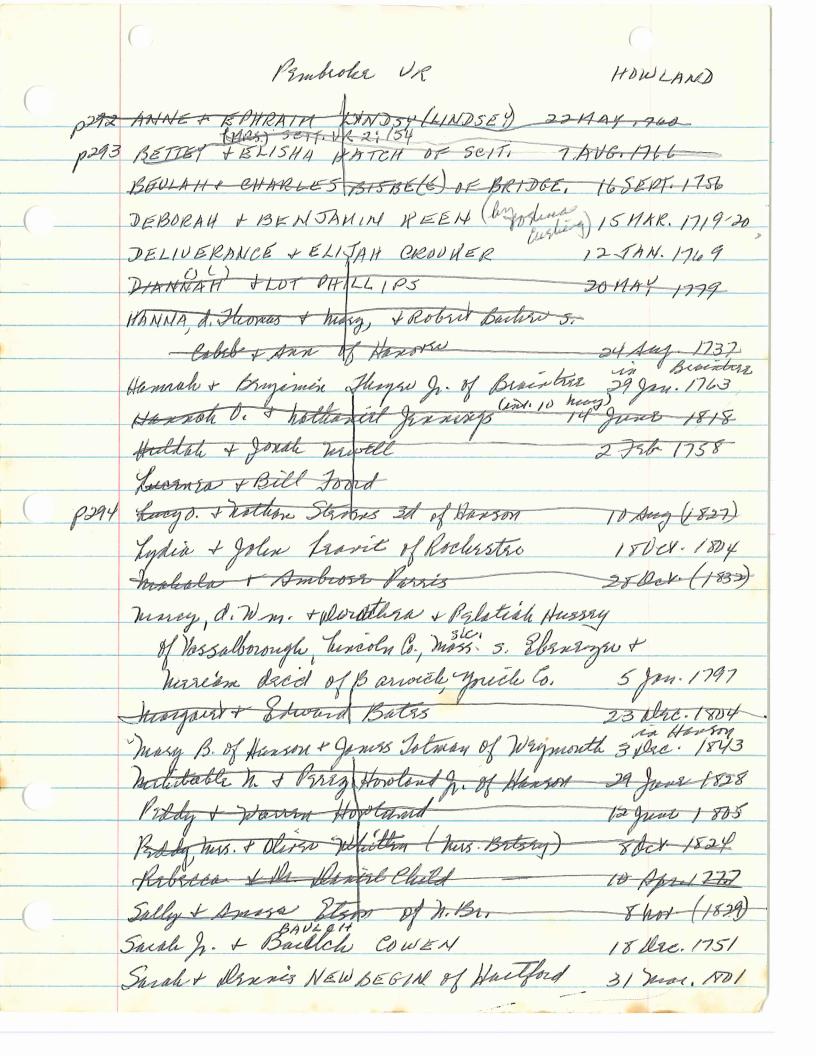 Pembroke VR HOWLAND
p292 ANNE + EPHRAIM LYNDSY (LINDSEY) 22 MAY 1760
(MRS.) SCIT. VR 2:154
p293 BETTEY + ELISHA HATCH OF SCIT. 7 AUG. 1766
BEULAH + CHARLES BISBE(E) OF BRIDGE. 16 SEPT. 1756
DEBORAH + BENJAMIN KEEN (by Joshua Cushing) 15 MAR. 1719-20
DELIVERANCE + ELIJAH CROOKER 12 JAN. 1769
DIANNAH + LOT PHILLIPS 20 MAY 1779
HANNA, d. Thomas + Mary, + Robert Barker s.
Caleb + Ann of Hanover 24 Aug. 1737
in Braintree
Hannah + Benjamin Thayer Jr. of Braintree 29 Jan. 1763
(int. 10 May)
Hannah O. + Nathaniel Jennings 14 June 1818
Huldah + Jonah Newell 2 Feb 1758
Lucenea + Bill Foord
p294 Lucy O. + Nathan Stevens 3d of Hanson 10 Aug (1827)
Lydia + John Leavit of Rochester 18 Oct. 1804
Mahala + Ambrose Parris 28 Oct. (1832)
Mercy, d. Wm. + Dorothea + Pelatiah Hussey
of Vassalborough, Lincoln Co., Mass. sic. s. Ebenezer +
Meriam dec'd of Barwick, York Co. 5 Jan. 1797
Margaret + Edward Bates 23 Dec. 1804
in Hanson
Mary B. of Hanson + James Totman of Weymouth 3 Dec. 1843
Mehitable N. + Perez Howland Jr. of Hanson 29 June 1828
Peddy + Warren Howland 12 June 1805
Peddy, Mrs. + Oliver Whitten (Mrs. Betsey) 8 Oct 1824
Rebecca + Dr. Daniel Child 10 Apr 1777
Sally + Amasa Etson of N. Br. 8 Nov (1829)
BAULCH
Sarah Jr. + Baulch COWEN 18 Dec. 1751
Sarah + Dennis NEWBEGIN of Hartford 31 Mar. 1801